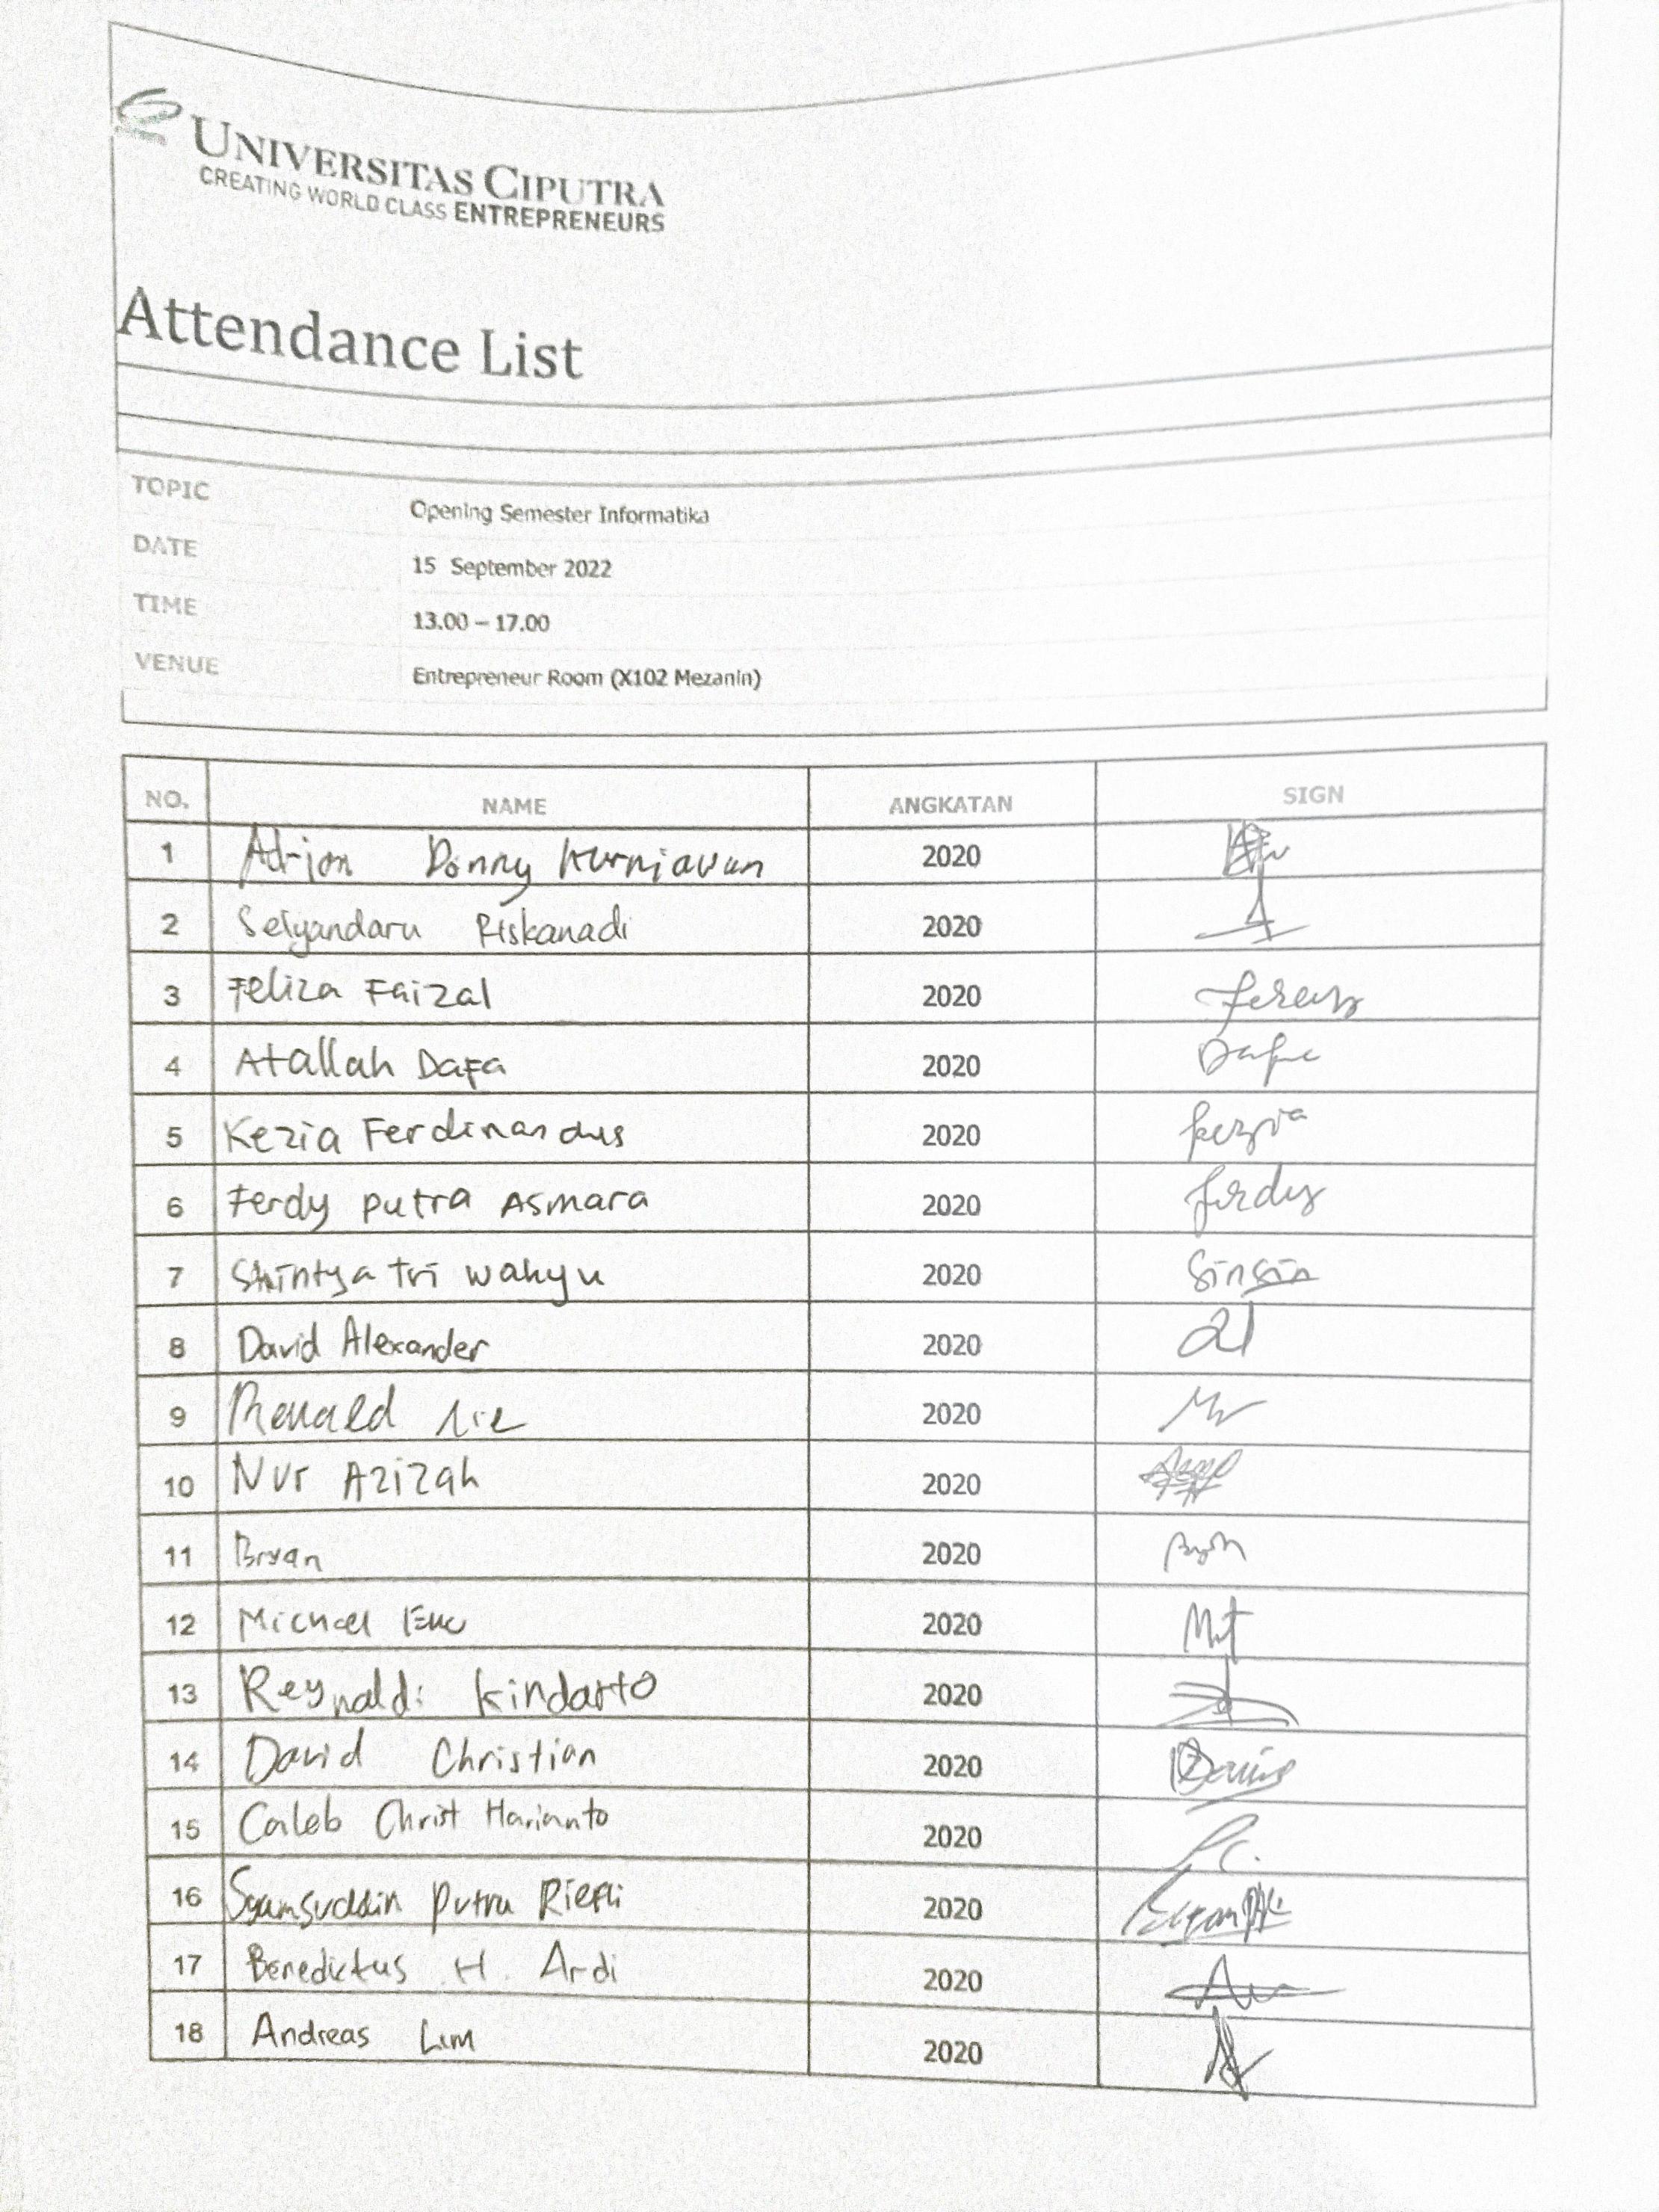 UNIVERSITAS CIPUTRA
CREATING WORLD CLASS ENTREPRENEURS
Attendance List
TOPIC Opening Semester Informatika
DATE 15 September 2022
TIME 13.00 – 17.00
VENUE Entrepreneur Room (X102 Mezanin)
NO. NAME ANGKATAN SIGN
1 Adrian Donny Kurniawan 2020
2 Setyandaru Riskanadi 2020
3 Feliza Faizal 2020
4 Atallah Dafa 2020 Dafa
5 Kezia Ferdinandus 2020 kezia
6 Ferdy putra Asmara 2020 ferdy
7 Shintya tri wahyu 2020 Sinsin
8 David Alexander 2020
9 Ronald Lie 2020
10 Nur Azizah 2020
11 Bryan 2020
12 Michael 2020
13 Reynaldi Kindarto 2020
14 David Christian 2020
15 Caleb Christ Harianto 2020
16 Syamsuddin Putra 2020
17 Benedictus H. Ardi 2020
18 Andreas Lim 2020